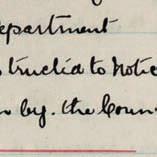 epartment
structed to Notic
n by. the Coun